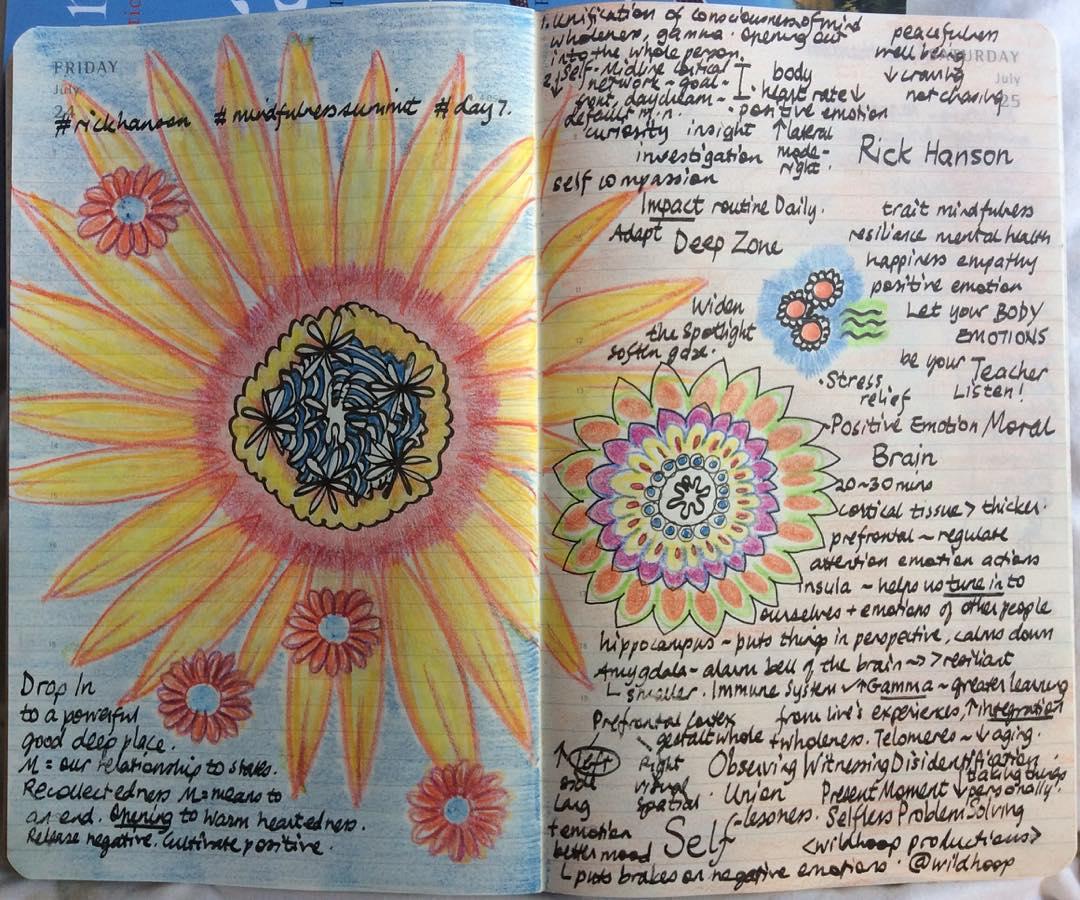 FRIDAY
July
24
#rickhanson #mindfulnesssummit #day7.
Drop In
to a powerful
good deep place.
M = our relationship to states.
Recollectedness M = means to
an end. Opening to warm heartedness.
Release negative. Cultivate positive.
SATURDAY
July
25
1. Unification of consciousness of mind
wholeness, gamma. opening out
into the whole person.
peacefulness
well being
↓ craving
not chasing
2. Self - Midline cortical
↓ network - goal -
front, daydream -
default m.n.
body
heart rate ↓
positive emotion
curiosity insight ↑ lateral
investigation mode -
right.
self compassion
Rick Hanson
Impact routine Daily.
Adapt Deep Zone
trait mindfulness
resilience mental health
happiness empathy
positive emotion
Let your BODY
EMOTIONS
be your Teacher
Listen!
Widen
the spotlight
soften gaze.
Stress
relief
Positive Emotion Moral
Brain
20~30 mins
cortical tissue > thicker.
prefrontal ~ regulate
attention emotion actions
insula ~ helps us tune in to
ourselves + emotions of other people
hippocampus ~ puts things in perspective, calms down
Amygdala - alarm bell of the brain ~> > resiliant
smaller. Immune System ✓ ↑ Gamma ~ greater learning
from live's experiences, ↑ integration
Prefrontal Cortex
gestalt whole + wholeness. Telomeres ~ ↓ aging.
↑ left Right
visual
lang spatial
+ emotion
better mood
Observing Witnessing Disidentification
Union Present Moment ↓ taking things
personally.
Self -lessness. Selfless Problem Solving
<wildhoop productions>
puts brakes on negative emotions. @wildhoop